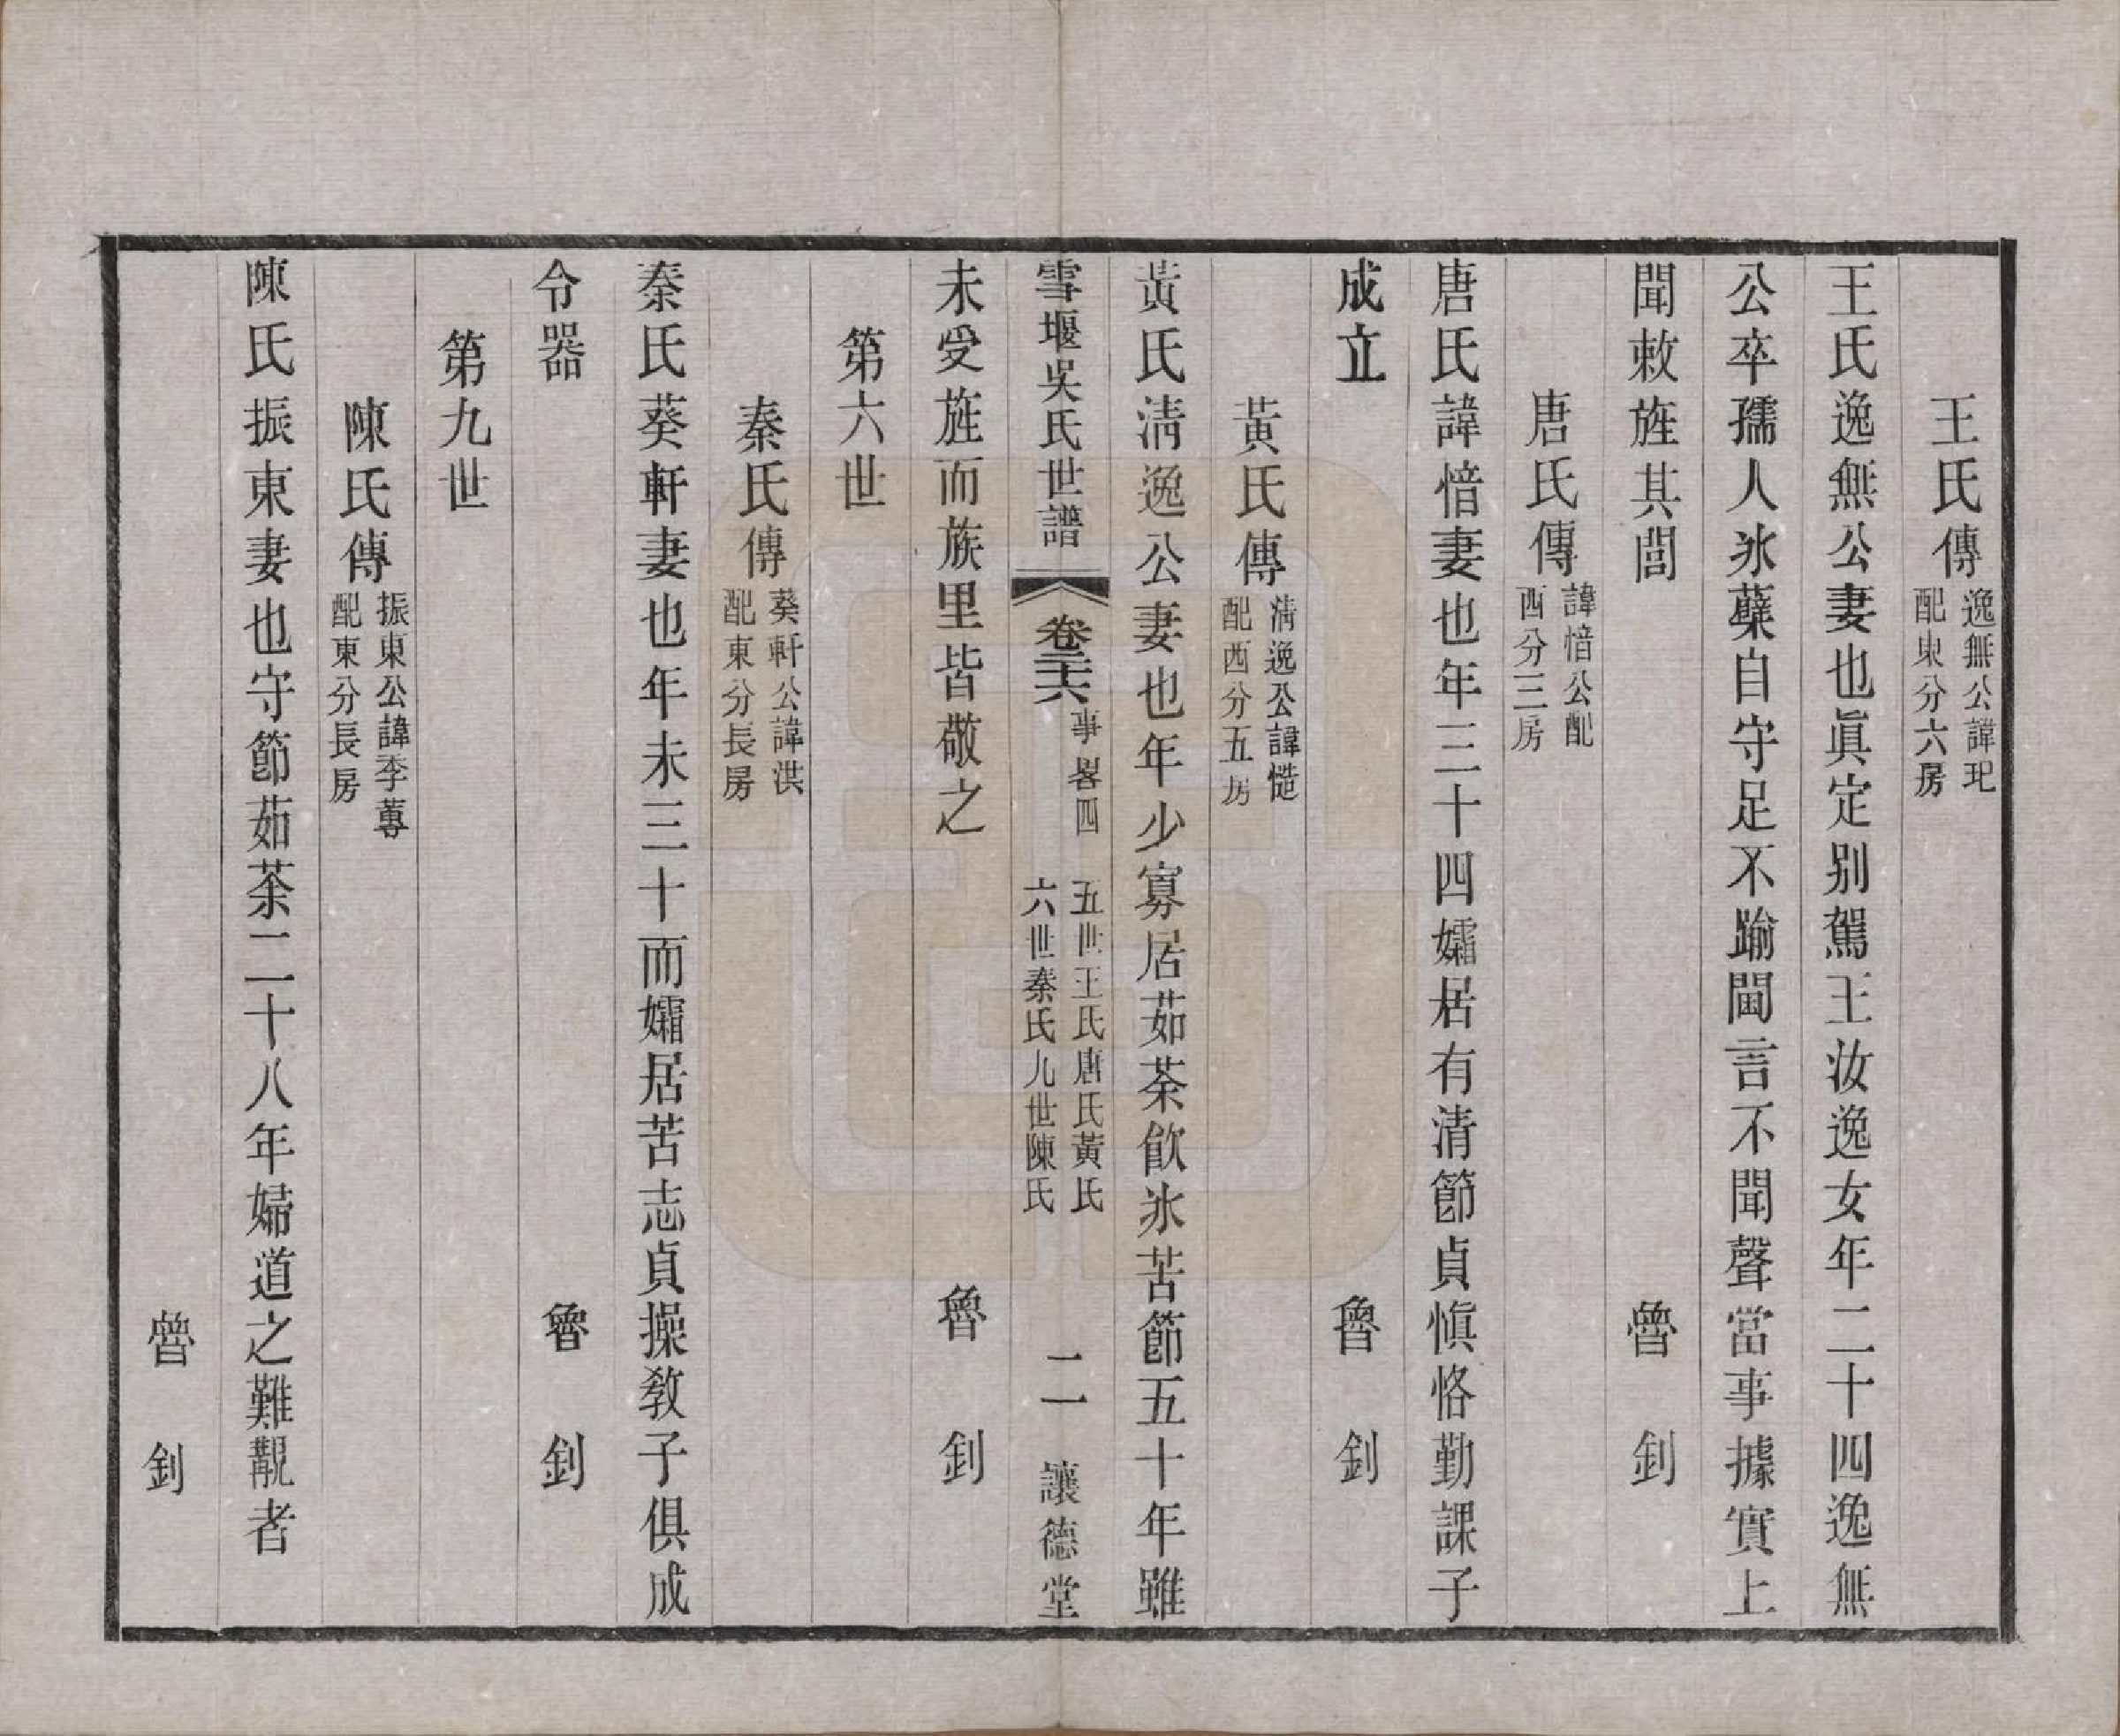 王氏傳 逸無公諱玘 配東分六房
王氏逸無公妻也眞定別駕王汝逸女年二十四逸無
公卒孺人氷蘗自守足不踰閫言不聞聲當事據實上
聞敕旌其閭 魯釗
唐氏傳 諱愔公配 西分三房
唐氏諱愔妻也年三十四孀居有清節貞愼恪勤課子
成立 魯釗
黃氏傳 清逸公諱慥 配西分五房
黃氏清逸公妻也年少寡居茹荼飮氷苦節五十年雖
雪堰吳氏世譜 卷三十六 事畧四 五世王氏唐氏黃氏 六世秦氏九世陳氏 二 讓德堂
未受旌而族里皆敬之 魯釗
第六世
秦氏傳 葵軒公諱洪 配東分長房
秦氏葵軒妻也年未三十而孀居苦志貞操教子俱成
令器 魯釗
第九世
陳氏傳 振東公諱季蓴 配東分長房
陳氏振東妻也守節茹荼二十八年婦道之難覯者
魯釗